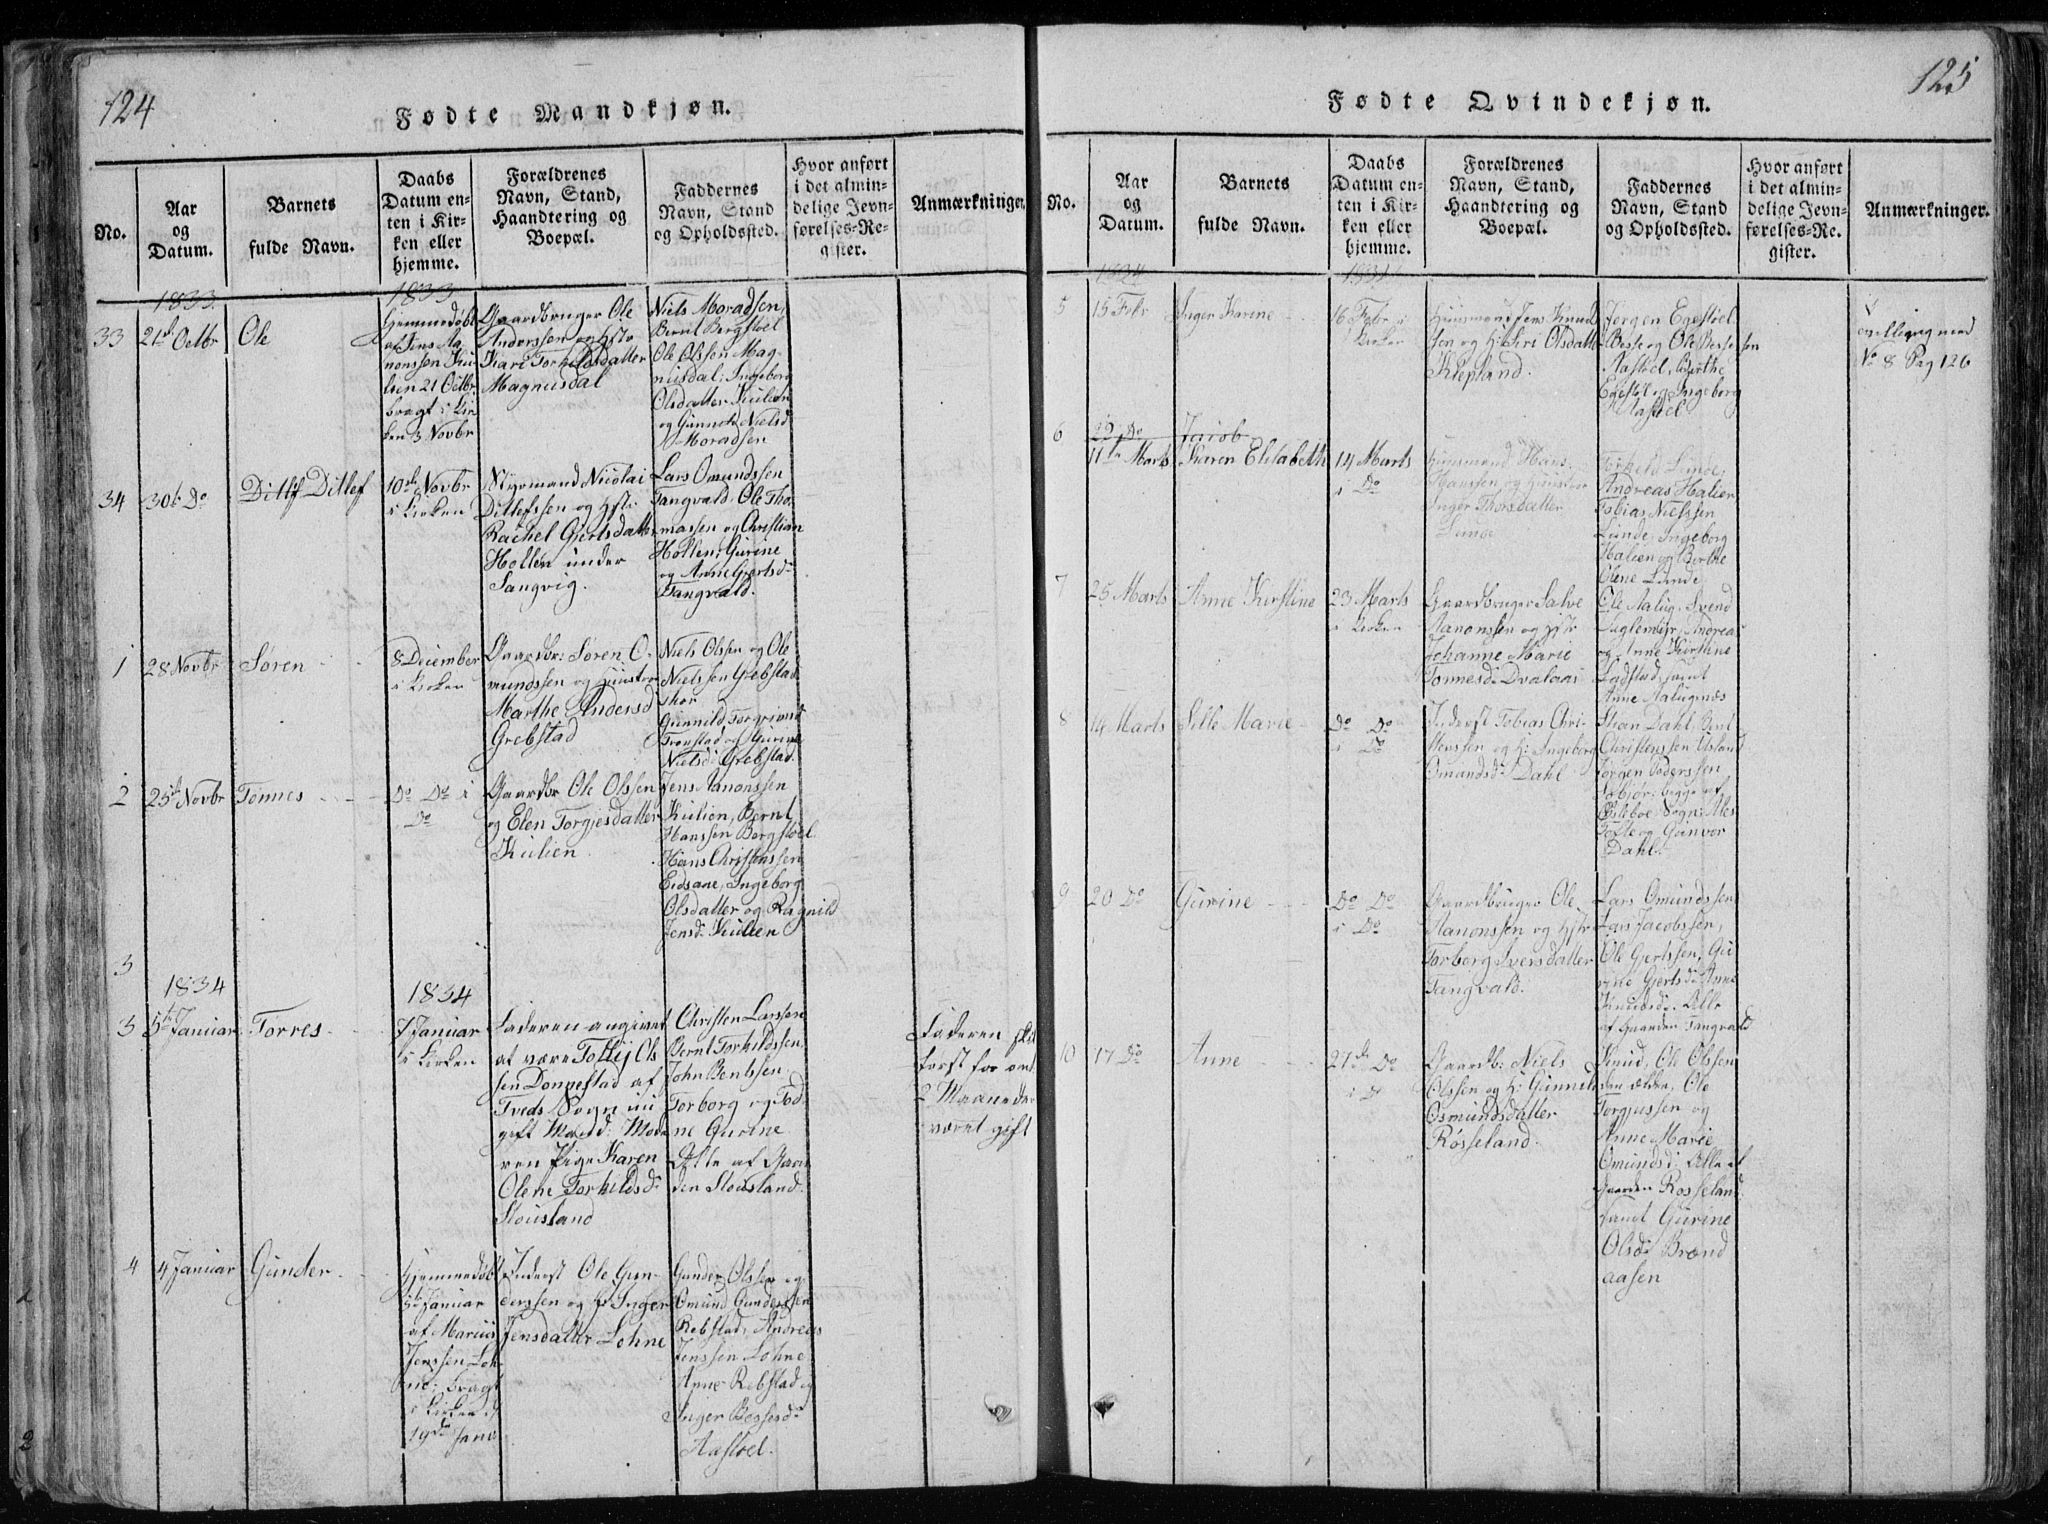 124
Fødte Mandkjøn.
No.
Aar
og
Datum.
Barnets
fulde Navn.
Daabs
Datum en-
ten i Kir-
ken eller
hjemme.
Forældrenes
Navn, Stand,
Haandtering og
Boepæl.
Faddernes
Navn, Stand
og Opholdssted.
Hvor anført
i det almin-
delige Jevn-
førelses-Re-
gister.
Anmærkninger.
1833
1833
33
21de Octbr
Ole
Hjemmedøbt
af Jens Aa-
nonssen Kui-
lien 21 Octbr
bragt i Kir
ken 3 Novbr
Gaardbruger Ole
Anderssen og Hstr
Kari Torkildsdatter
Magnusdal
Niels Moradsen,
Bernt Bergstøel
Ole Olssen Mag-
nusdal, Ingeborg
Olsdatter Kuilien
og Gunnild Nielsd
Moradsen
34
30te Do
Ditlif Ditlef
10de Novbr
i Kirken
Styrmand Nicolai
Ditlefssen og Hstr
Rachel Gjertsdatter
Hollen under
Sangvig.
Lars Omundssen
Tangvald, Ole Tho-
massen og Christian
Hollen, Gurine
og Anne Gjertsd:
Tangvald.
1
28 Novbr
Søren
8 December
i Kirken
Gaardbr: Søren O-
mundssen og Huustroe
Marthe Andersd
Grebstad
Niels Olssen og Ole
Nielssen Grebstad
Gunnild Torgrimsd
Tronstad og Gurine
Nielsd: Grebstad.
2
25de Novbr
Tønnes
Do Do i
Do
Gaardbr Ole Olssen
og Elen Torgjesdatter
Kuilien
Jens Aanonssen
Kuilien, Bernt
Hanssen Bergstøel
Hans Christenssen
Eidsaae, Ingeborg
Olsdatter og Ragnild
Jensd: Kuilien
3
1834
1834
3
5te Januar
Torres
7 Januar
i Kirken
Faderen angivet
at være Tollif Ols
sen Donnestad af
Tveds Sogn nu
gift Mand: Mode
ren Pige Karen
Olene Torkildsd:
Stousland
Christen Larssen
Bernt Torkildssen,
John Bentssen
Torborg og Tod-
ne Gurine
Alle af Gaar
den Stousland.
Faderen skal
først for omt
2 Maaneder
været gift
4
4 Januar
Gunder
Hjemmedøbt
5te Januar
af Marius
Jenssen Loh-
ne, bragt
i Kirken d
19de Janu
Inderst Ole Gun-
derssen og H: Inger
Jensdatter Lohne
Gunder Olssen og
Omund Gunderssen
Rebstad, Andreas
Jenssen Lohne
Anne Rebstad og
Inger Bessesd:
Aastøel.
125
Fødte Qvindekjøn.
No.
Aar
og
Datum.
Barnets
fulde Navn.
Daabs
Datum en-
ten i Kir-
ken eller
hjemme.
Forældrenes
Navn, Stand,
Haandtering og
Boepæl.
Faddernes
Navn, Stand
og Opholdssted.
Hvor anført
i det almin-
delige Jevn-
førelses-Re-
gister.
Anmærkninger.
1834
1834
5
15 Febr
Inger Karine
16 Febr i
Kirken
Huusmand Jens Knud
sen og H: Siri Olsdatter
Klepland.
Jørgen Egestøel
Besse og Ole Bessesen
Aastøel, Birthe
Egestøl og Ingeborg
Aastøel
tvilling med
No 8 Pag 126
6
22 Do
Jacob
11te Marts
Karen Elisabeth
14 Marts
i Do
Huusmand Hans
Hanssen og Huustroe
Inger Thorsdatter
Lunde
Torkild Lunde,
Andreas Halien
Tobias Nielssen
Lunde, Ingeborg
Halien og Berthe
Olene Lunde
7
25 Marts
Anne Kirstine
23 Marts
i Kirken
Gaardbruger Salve
Aanonssen og Hstr
Johanne Marie
Tønnesd: Dvalaas
Ole Aalug, Svend
Fuglemyr, Andreas
og Anne Kirstine
Ladstad, samt
Anne Aalugnæs
8
14 Marts
Sille Marie
Do Do
i Do
Inderst Tobias Chri-
stenssen og H: Ingeborg
Omandsd: Dahl
Stian Dahl, Bent
Christenssen Ulsland
Jørgen Pederssen
begge af
Øslebøe Sogn,
Tofte og Gunvor
Dahl.
9
20 Do
Gurine
Do Do
i Do
Gaardbruger Ole
Aanonssen og Hstr
Torborg Iversdatter
Tangvald.
Lars Omundssen
Lars Jacobssen,
Ole Gjertssen, Gu
rine Gjertsd: Anne
Knudsd: Alle
af Gaarden Tangvald
10
17 Do
Anne
27de Do
i Do
Gaardb: Niels
Olssen og H: Gunnild
Osmundsdatter
Røsseland.
Knud, Ole Olssen
den ældre, Ole
Torgjussen og
Anne Marie
Omundsd: Alle af
Gaarden Rosseland
samt Gurine
Olsd: Brænd
aasen